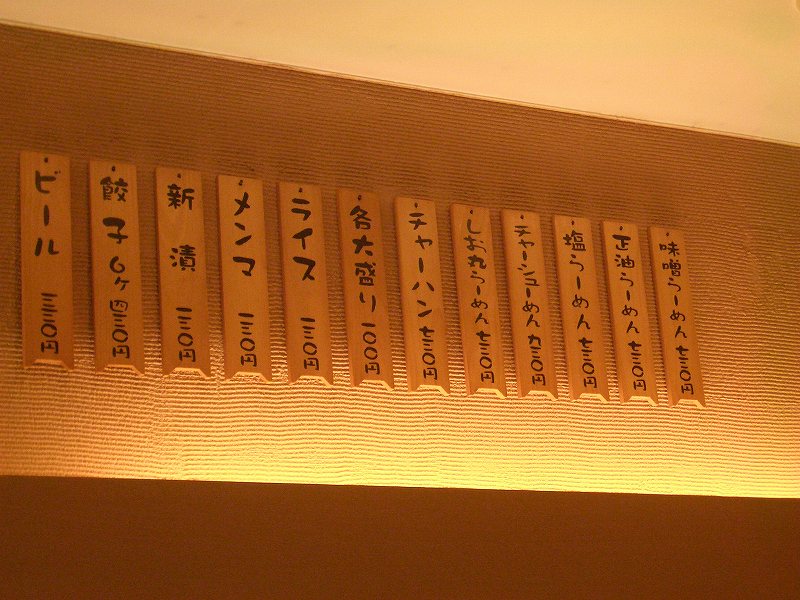 味噌らーめん七三〇円
正油らーめん七三〇円
塩らーめん七三〇円
チャーシューめん九三〇円
しお丸らーめん七三〇円
チャーハン七三〇円
各大盛り一〇〇円
ライス一三〇円
メンマ一三〇円
新漬一三〇円
餃子6ヶ四三〇円
ビール三三〇円